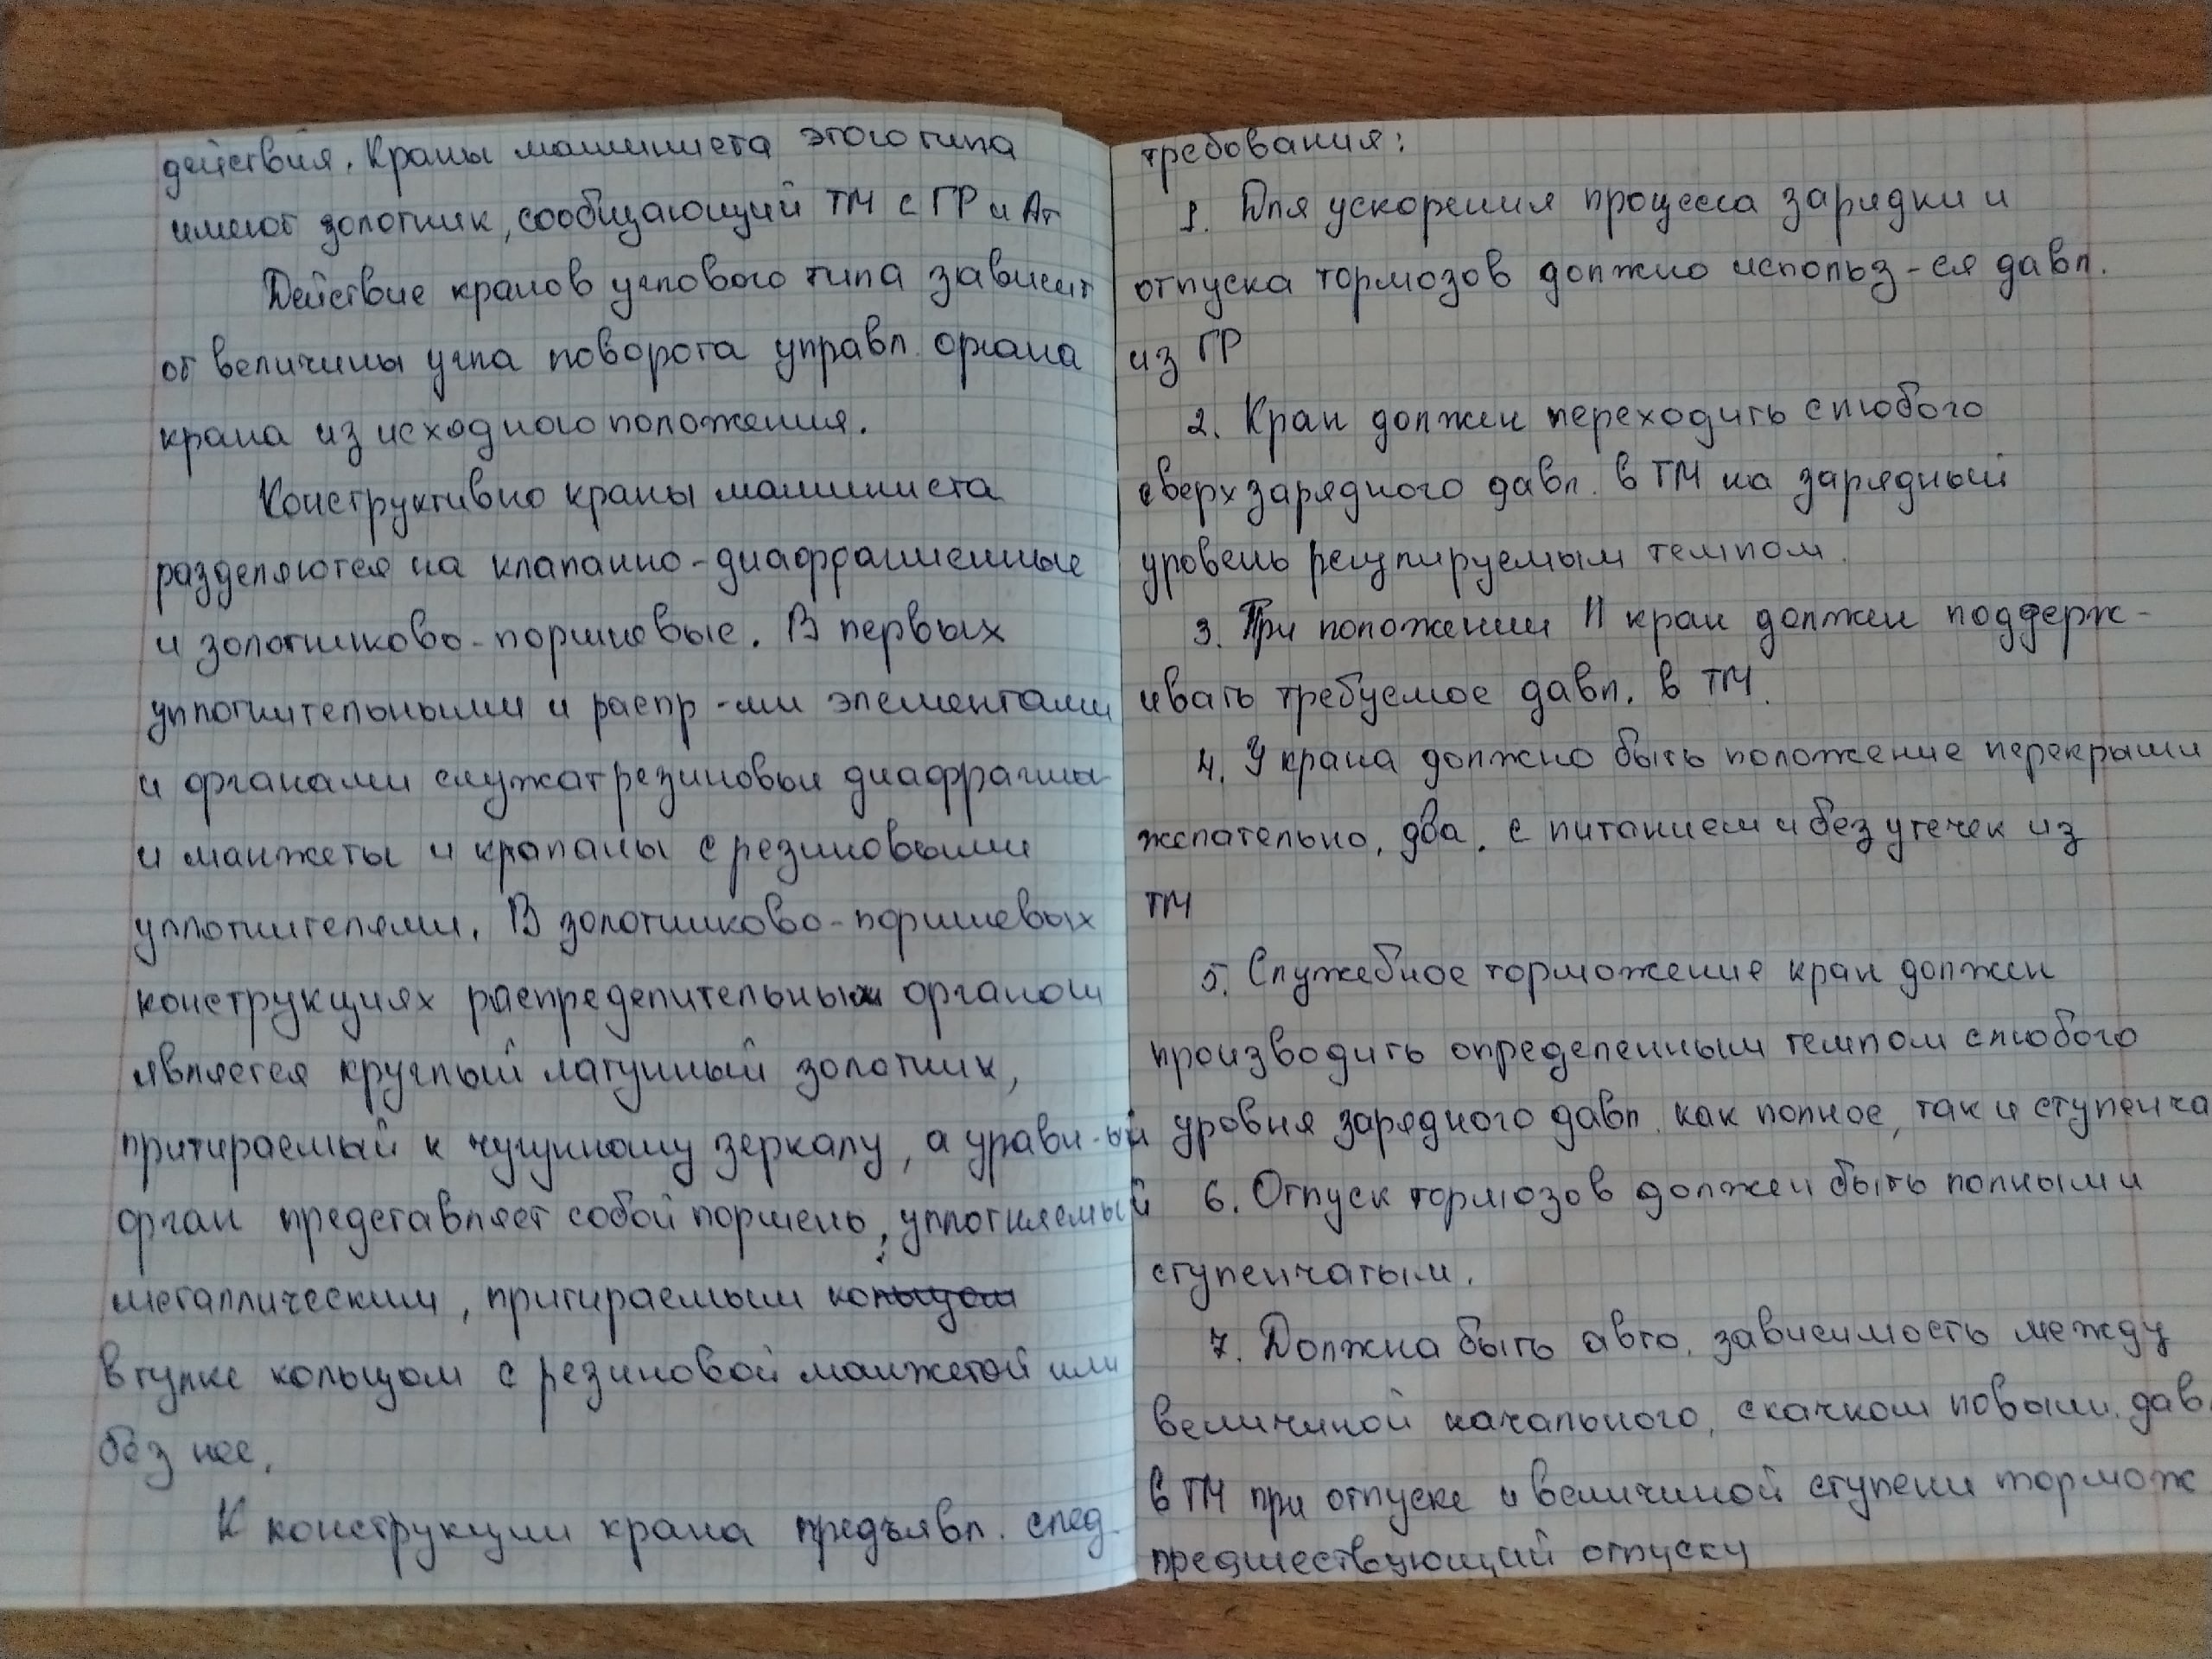 действия. Краны машиниста этого типа
имеют золотник, сообщающий ТМ с ГР и Ат
Действие кранов углового типа зависит
от величины угла поворота управл. органа
крана из исходного положения.
Конструктивно краны машиниста
разделяются на клапанно-диафрагменные
и золотниково-поршневые. В первых
уплотнительными и распр-ми элементами
и органами служат резиновые диафрагмы
и манжеты и крапаны с резиновыми
уплотнителями. В золотниково-поршневых
конструкциях распределительным органом
является круглый латунный золотник,
притираемый к чугунному зеркалу, а уравн-ый
орган представляет собой поршень, уплотняемый
металлическим, притираемым кольцом
втулке кольцом с резиновой манжетой или
без нее.
К конструкции крана предъявл. след.
требования:
1. Для ускорения процесса зарядки и
отпуска тормозов должно использ-ся давл.
из ГР
2. Кран должен переходить с любого
сверхзарядного давл. в ТМ на зарядный
уровень регулируемым темпом.
3. При положении II кран должен поддерж-
ивать требуемое давл. в ТМ.
4. У крана должно быть положение перекрыши
желательно, два. с питанием и без утечек из
ТМ
5. Служебное торможение кран должен
производить определенным темпом с любого
уровня зарядного давл. как полное, так и ступенча
6. Отпуск тормозов должен быть полным и
ступенчатым.
7. Должна быть авто. зависимость между
величиной начального, скачком повыш. дав
в ТМ при отпуске и величиной ступени тормож
предшествующий отпуску